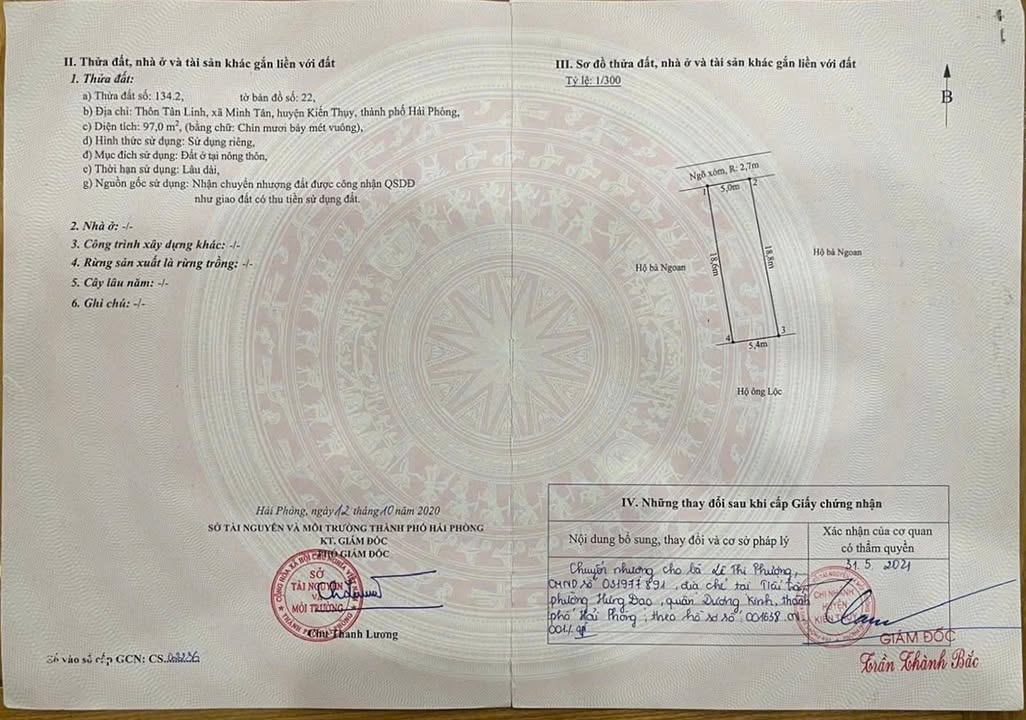 II. Thửa đất, nhà ở và tài sản khác gắn liền với đất
1. Thửa đất:
a) Thửa đất số: 134.2, tờ bản đồ số: 22,
b) Địa chỉ: Thôn Tân Linh, xã Minh Tân, huyện Kiến Thụy, thành phố Hải Phòng,
c) Diện tích: 97,0 m², (bằng chữ: Chín mươi bảy mét vuông),
d) Hình thức sử dụng: Sử dụng riêng,
đ) Mục đích sử dụng: Đất ở tại nông thôn,
e) Thời hạn sử dụng: Lâu dài,
g) Nguồn gốc sử dụng: Nhận chuyển nhượng đất được công nhận QSDĐ
như giao đất có thu tiền sử dụng đất.
2. Nhà ở: -/-
3. Công trình xây dựng khác: -/-
4. Rừng sản xuất là rừng trồng: -/-
5. Cây lâu năm: -/-
6. Ghi chú: -/-
Hải Phòng, ngày 12 tháng 10 năm 2020
SỞ TÀI NGUYÊN VÀ MÔI TRƯỜNG THÀNH PHỐ HẢI PHÒNG
KT. GIÁM ĐỐC
PHÓ GIÁM ĐỐC
SỞ
TÀI NGUYÊN
VÀ
MÔI TRƯỜNG
Chu Thanh Lương
Số vào sổ cấp GCN: CS.
III. Sơ đồ thửa đất, nhà ở và tài sản khác gắn liền với đất
Tỷ lệ: 1/300
B
Ngõ xóm, R: 2,7m
1 5,0m 2
18,6m
18,8m
Hộ bà Ngoan
Hộ bà Ngoan
4 5,4m 3
Hộ ông Lộc
IV. Những thay đổi sau khi cấp Giấy chứng nhận
Nội dung bổ sung, thay đổi và cơ sở pháp lý
Xác nhận của cơ quan
có thẩm quyền
Chuyển nhượng cho bà Lê Thị Phương,
CMND số 031977891, địa chỉ tại
phường Hưng Đạo, quận Dương Kinh, thành
phố Hải Phòng; theo hồ sơ số: 001638.
001/.
31. 5. 2021
CHI NHÁNH
HUYỆN
KIẾN THỤY
GIÁM ĐỐC
Trần Thành Bắc